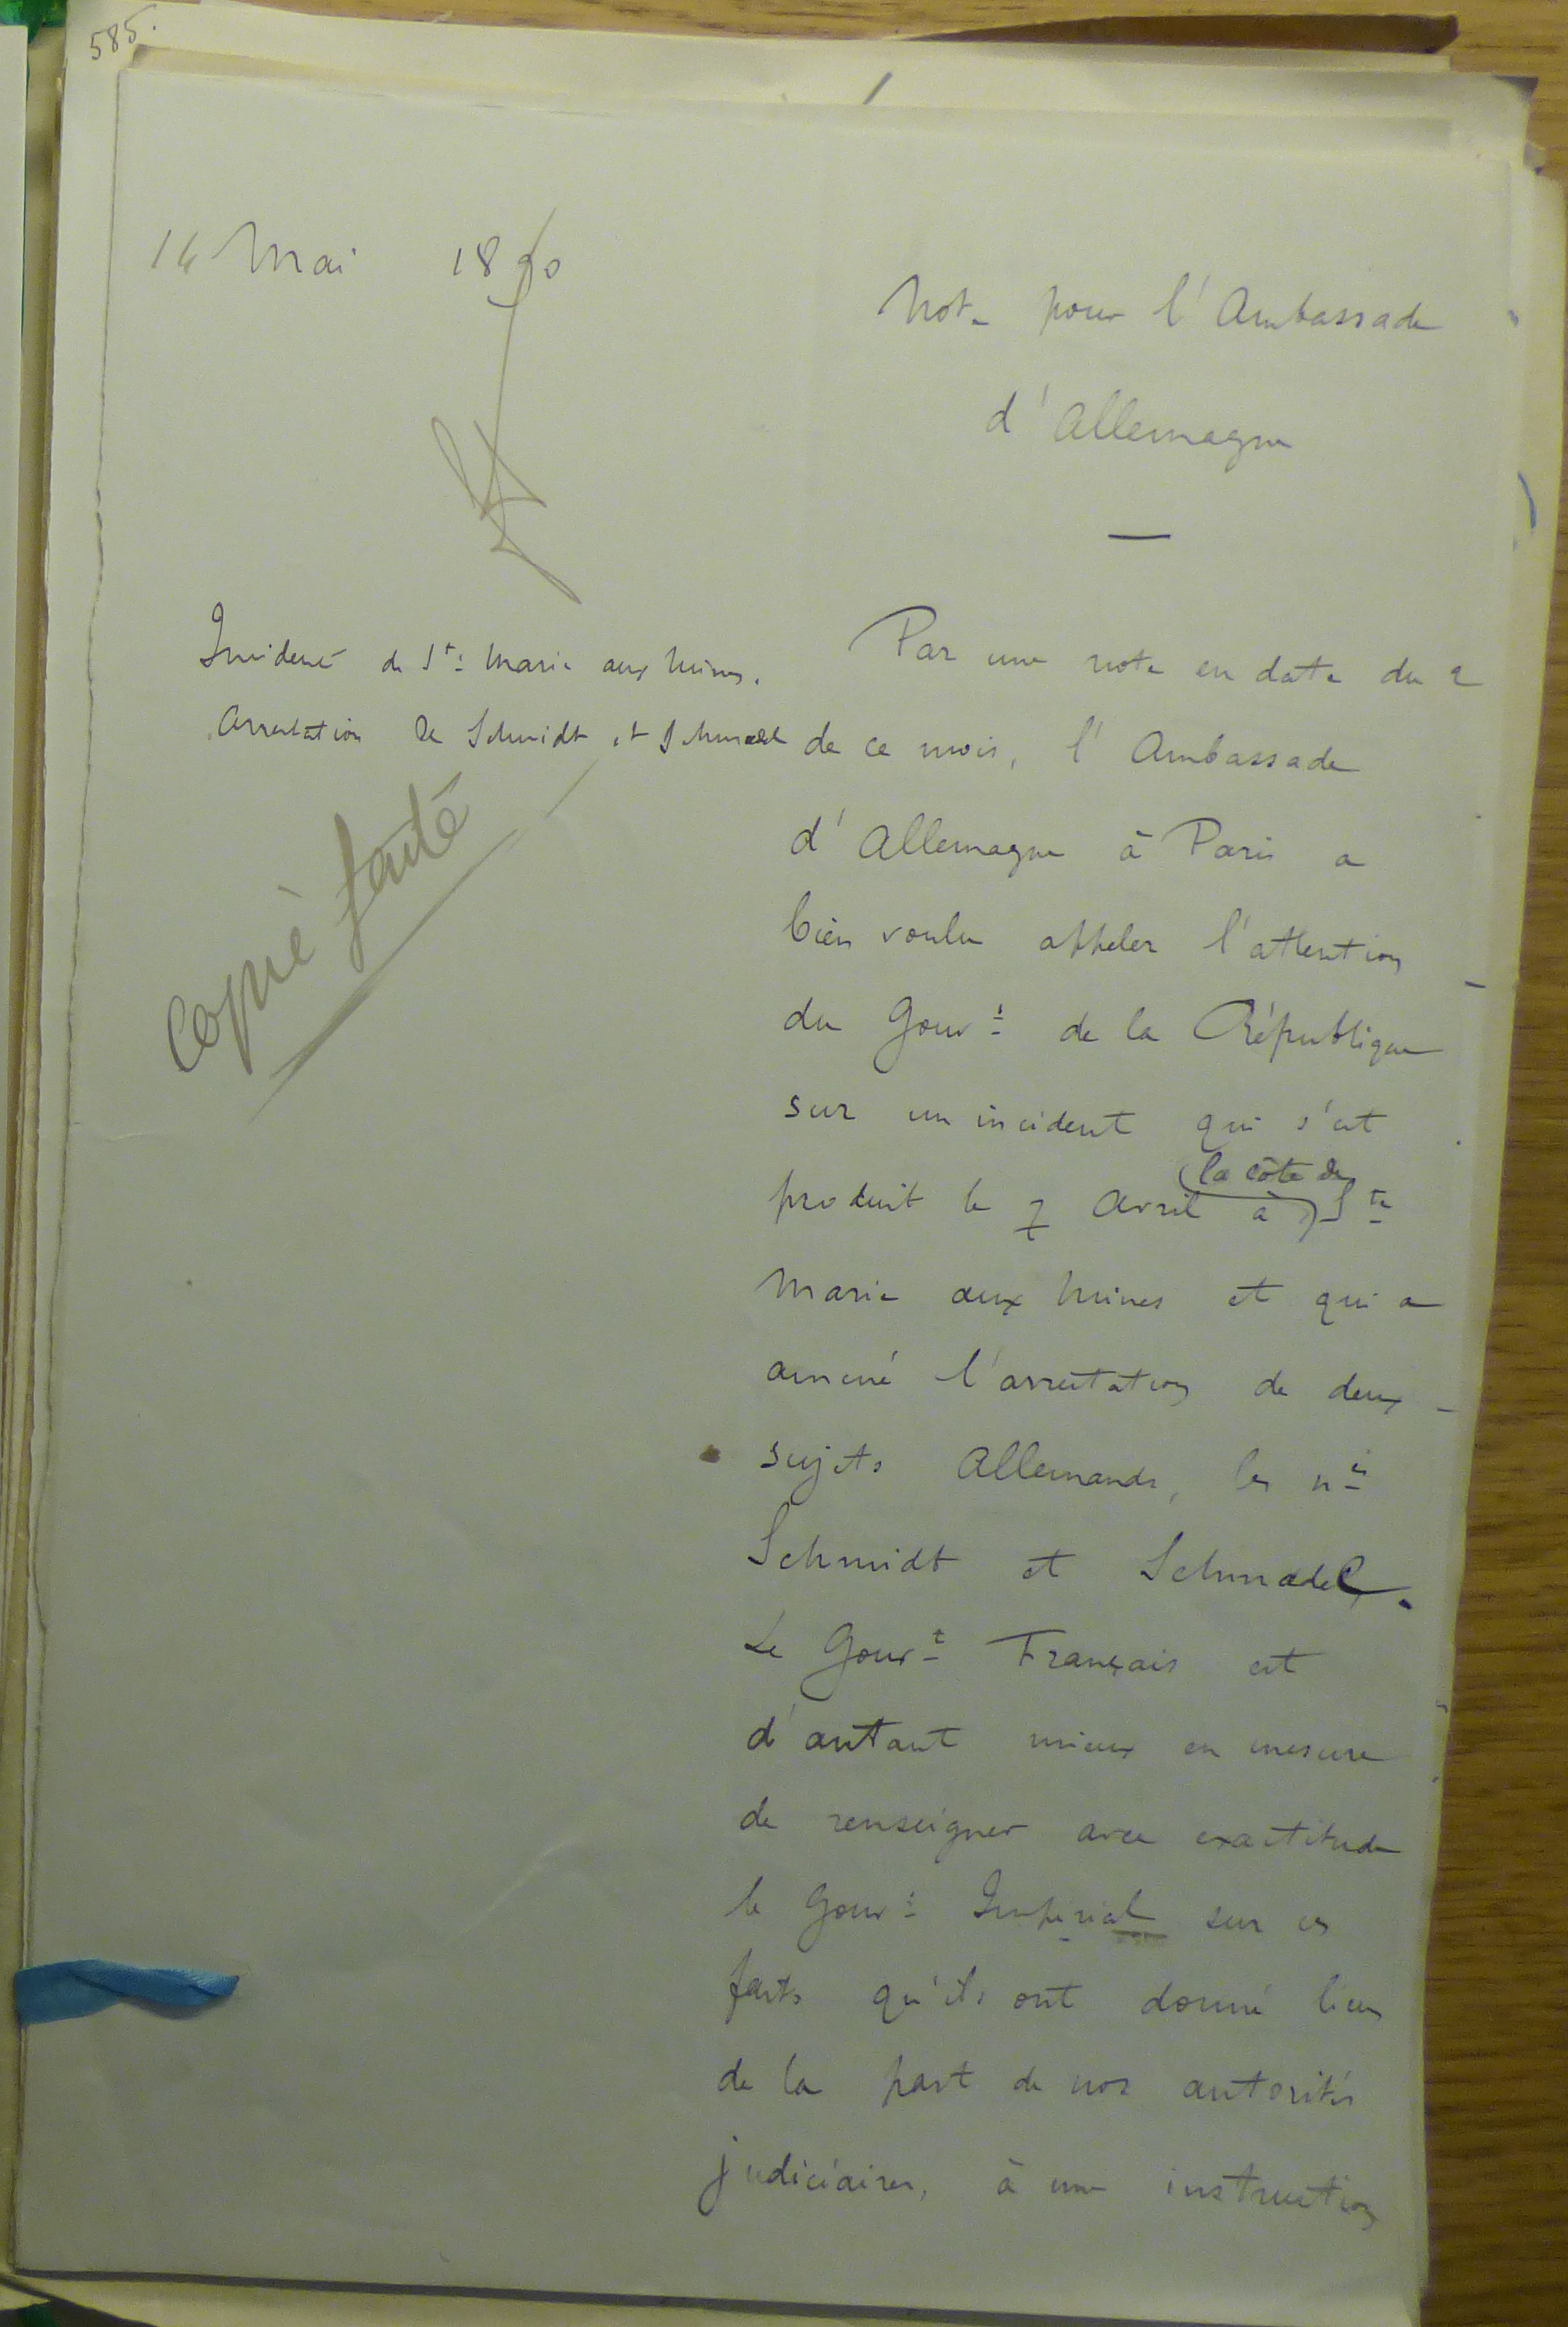 585.
14 Mai 1890
Note pour l'Ambassade
d'Allemagne
Incident de Ste Marie aux Mines.
Arrestation de Schmidt et Schmadel
copie faite
Par une note en date du 2
de ce mois, l'Ambassade
d'Allemagne à Paris a
bien voulu appeler l'attention
du Gouvt de la République
sur un incident qui s'est
la côte de
produit le 7 Avril à Ste
Marie aux Mines et qui a
amené l'arrestation de deux
sujets Allemands, les nés
Schmidt et Schmadel.
Le Gouvt Français est
d'autant mieux en mesure
de renseigner avec exactitude
le Gouvt Impérial sur ces
faits qu'ils ont donné lieu
de la part de nos autorités
judiciaires, à une instruction